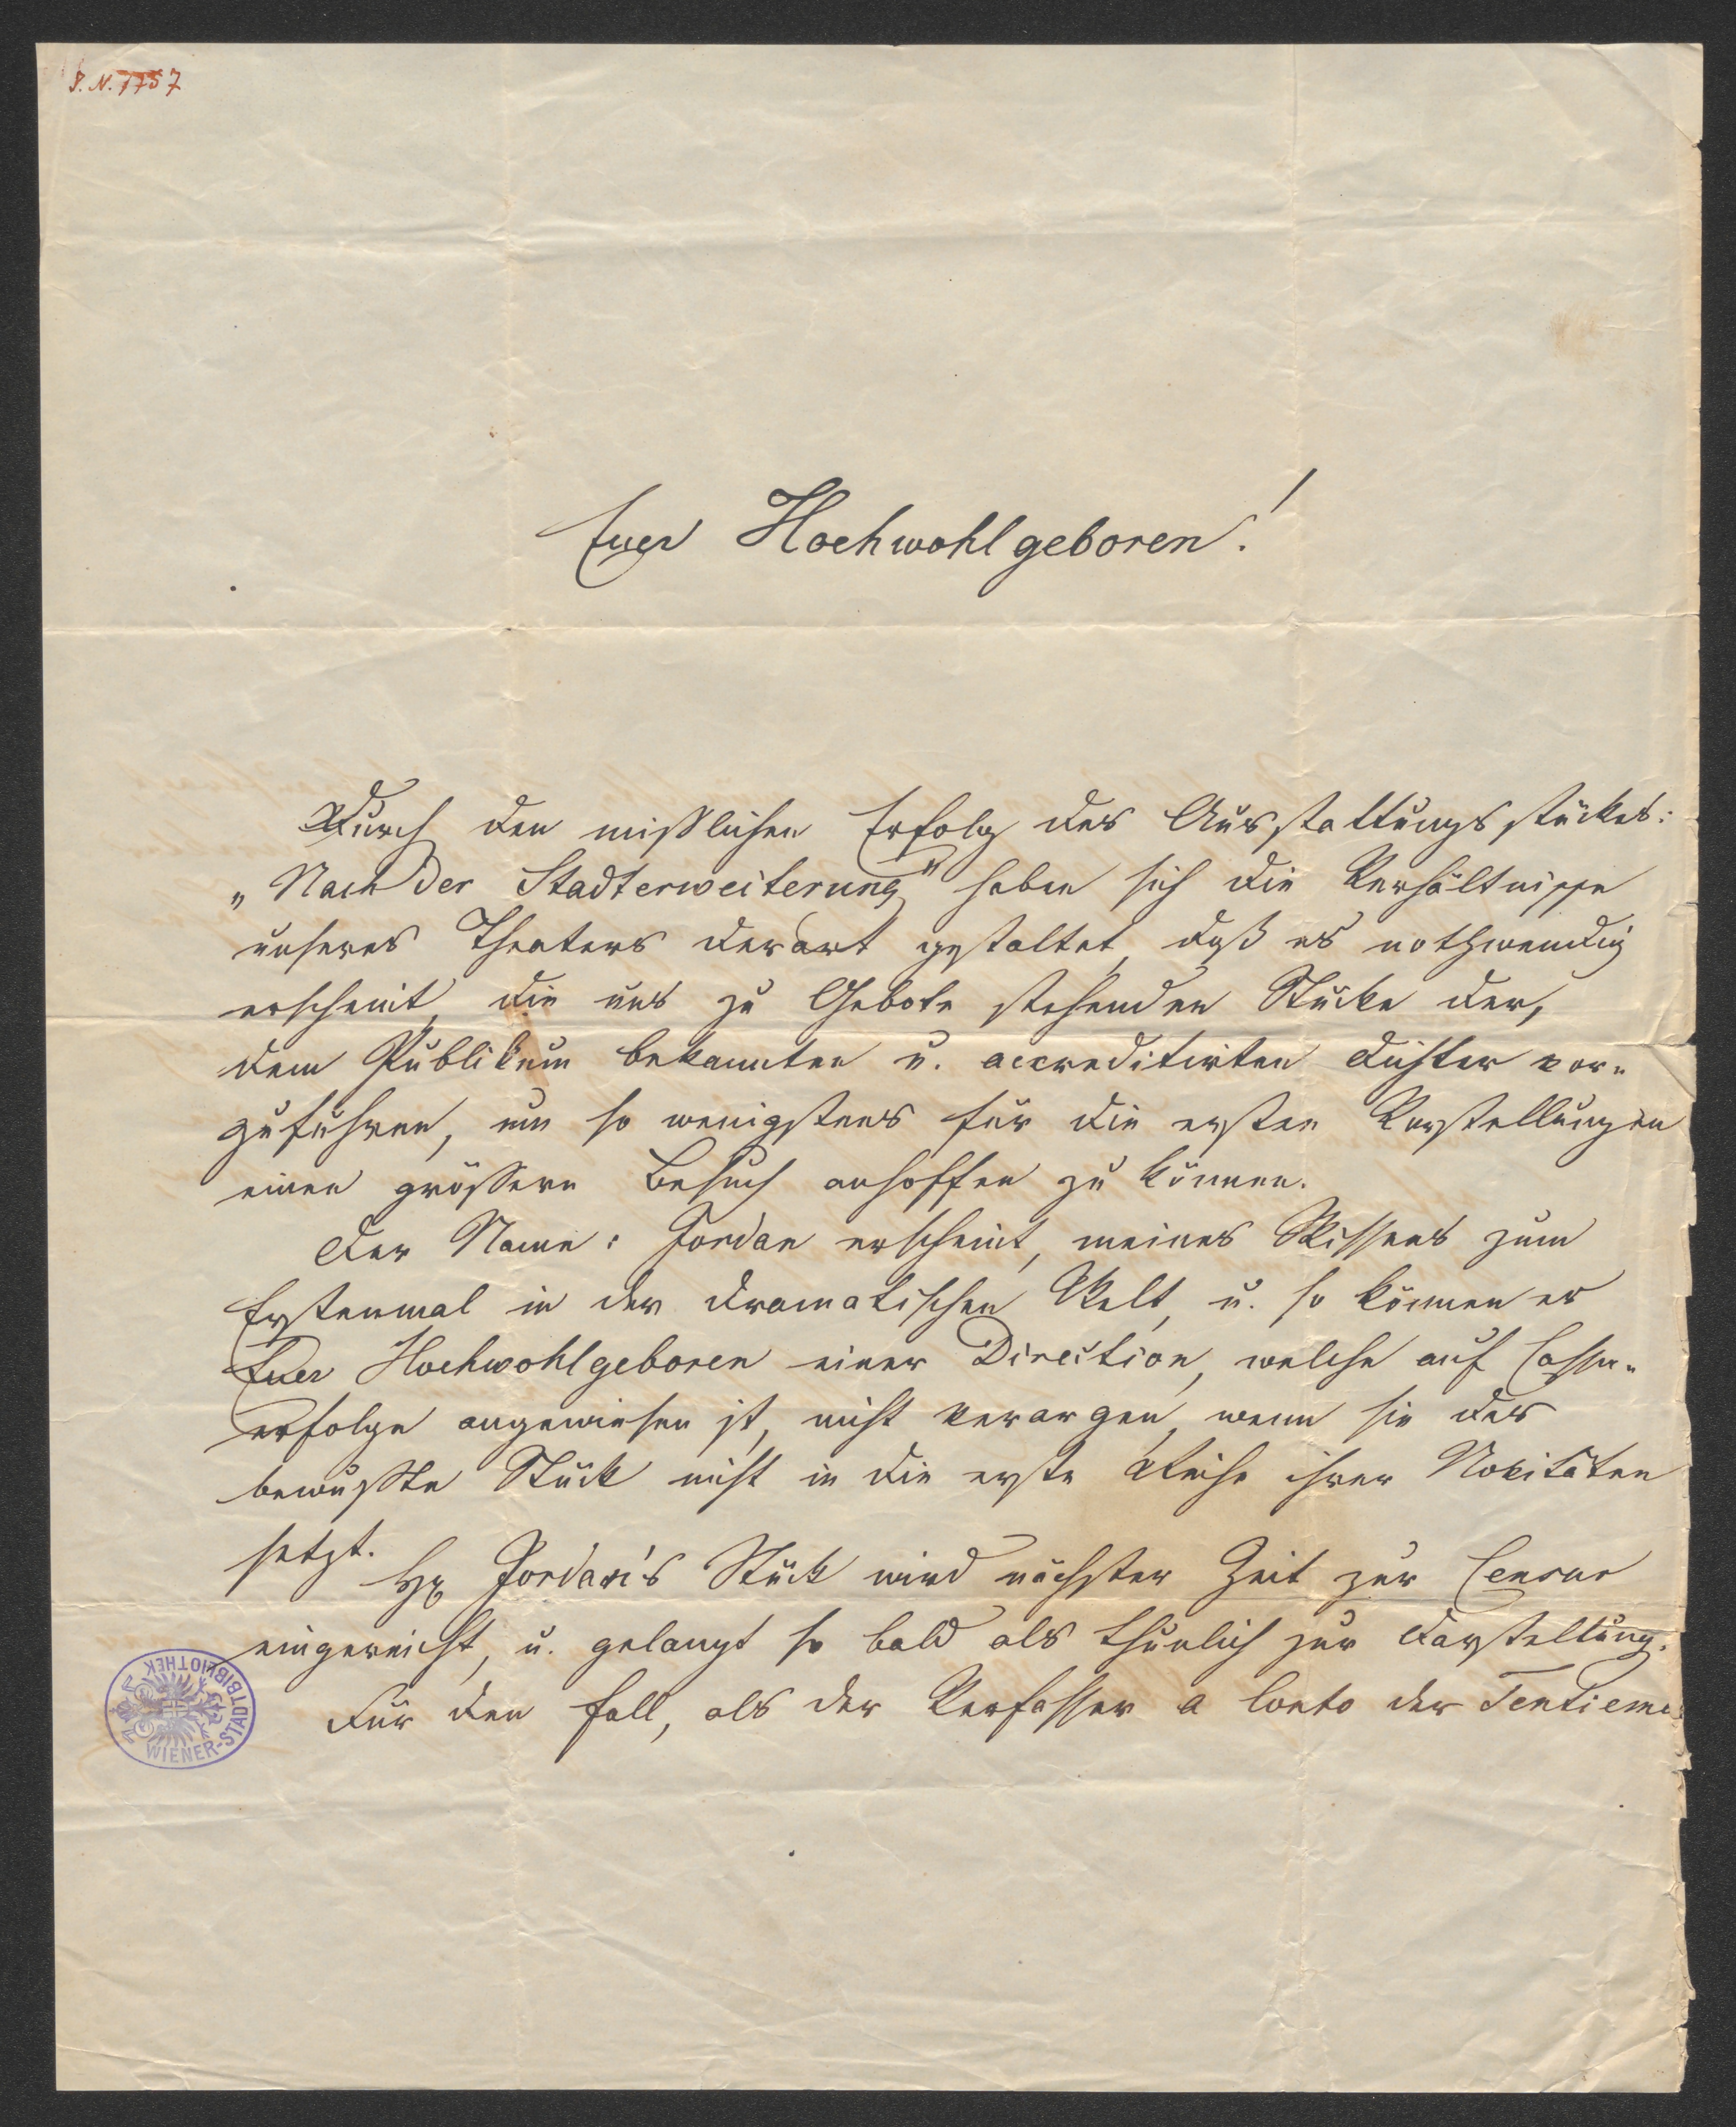 I. N. 7757
Euer Hochwohlgeboren!
Durch den mißlichen Erfolg des Ausstattungsstückes:
„Nach der Stadterweiterung" haben sich die Verhältnisse
unseres Theaters derart gestaltet, daß es nothwendig
erscheint, die uns zu Gebote stehenden Stücke der,
dem Publikum bekannten u. accreditirten Dichter vor-
zuführen, um so wenigstens für die ersten Vorstellungen
einen größern Besuch anhoffen zu können.
Der Name: Jordan erscheint, meines Wissens zum
Erstenmal in der dramatischen Welt, u. so können es
Euer Hochwohlgeboren einer Direction, welche auf Cassa-
erfolge angewiesen ist, nicht verargen, wenn sie das
bewußte Stück nicht in die erste Reihe ihrer Novitäten
setzt.
Hr Jordan's Stück wird nächster Zeit zur Censur
eingereicht, u. gelangt so bald als thunlich zur Darstellung.
Für den Fall, als der Verfasser a Conto der Tentieme
WIENER-STADTBIBLIOTHEK